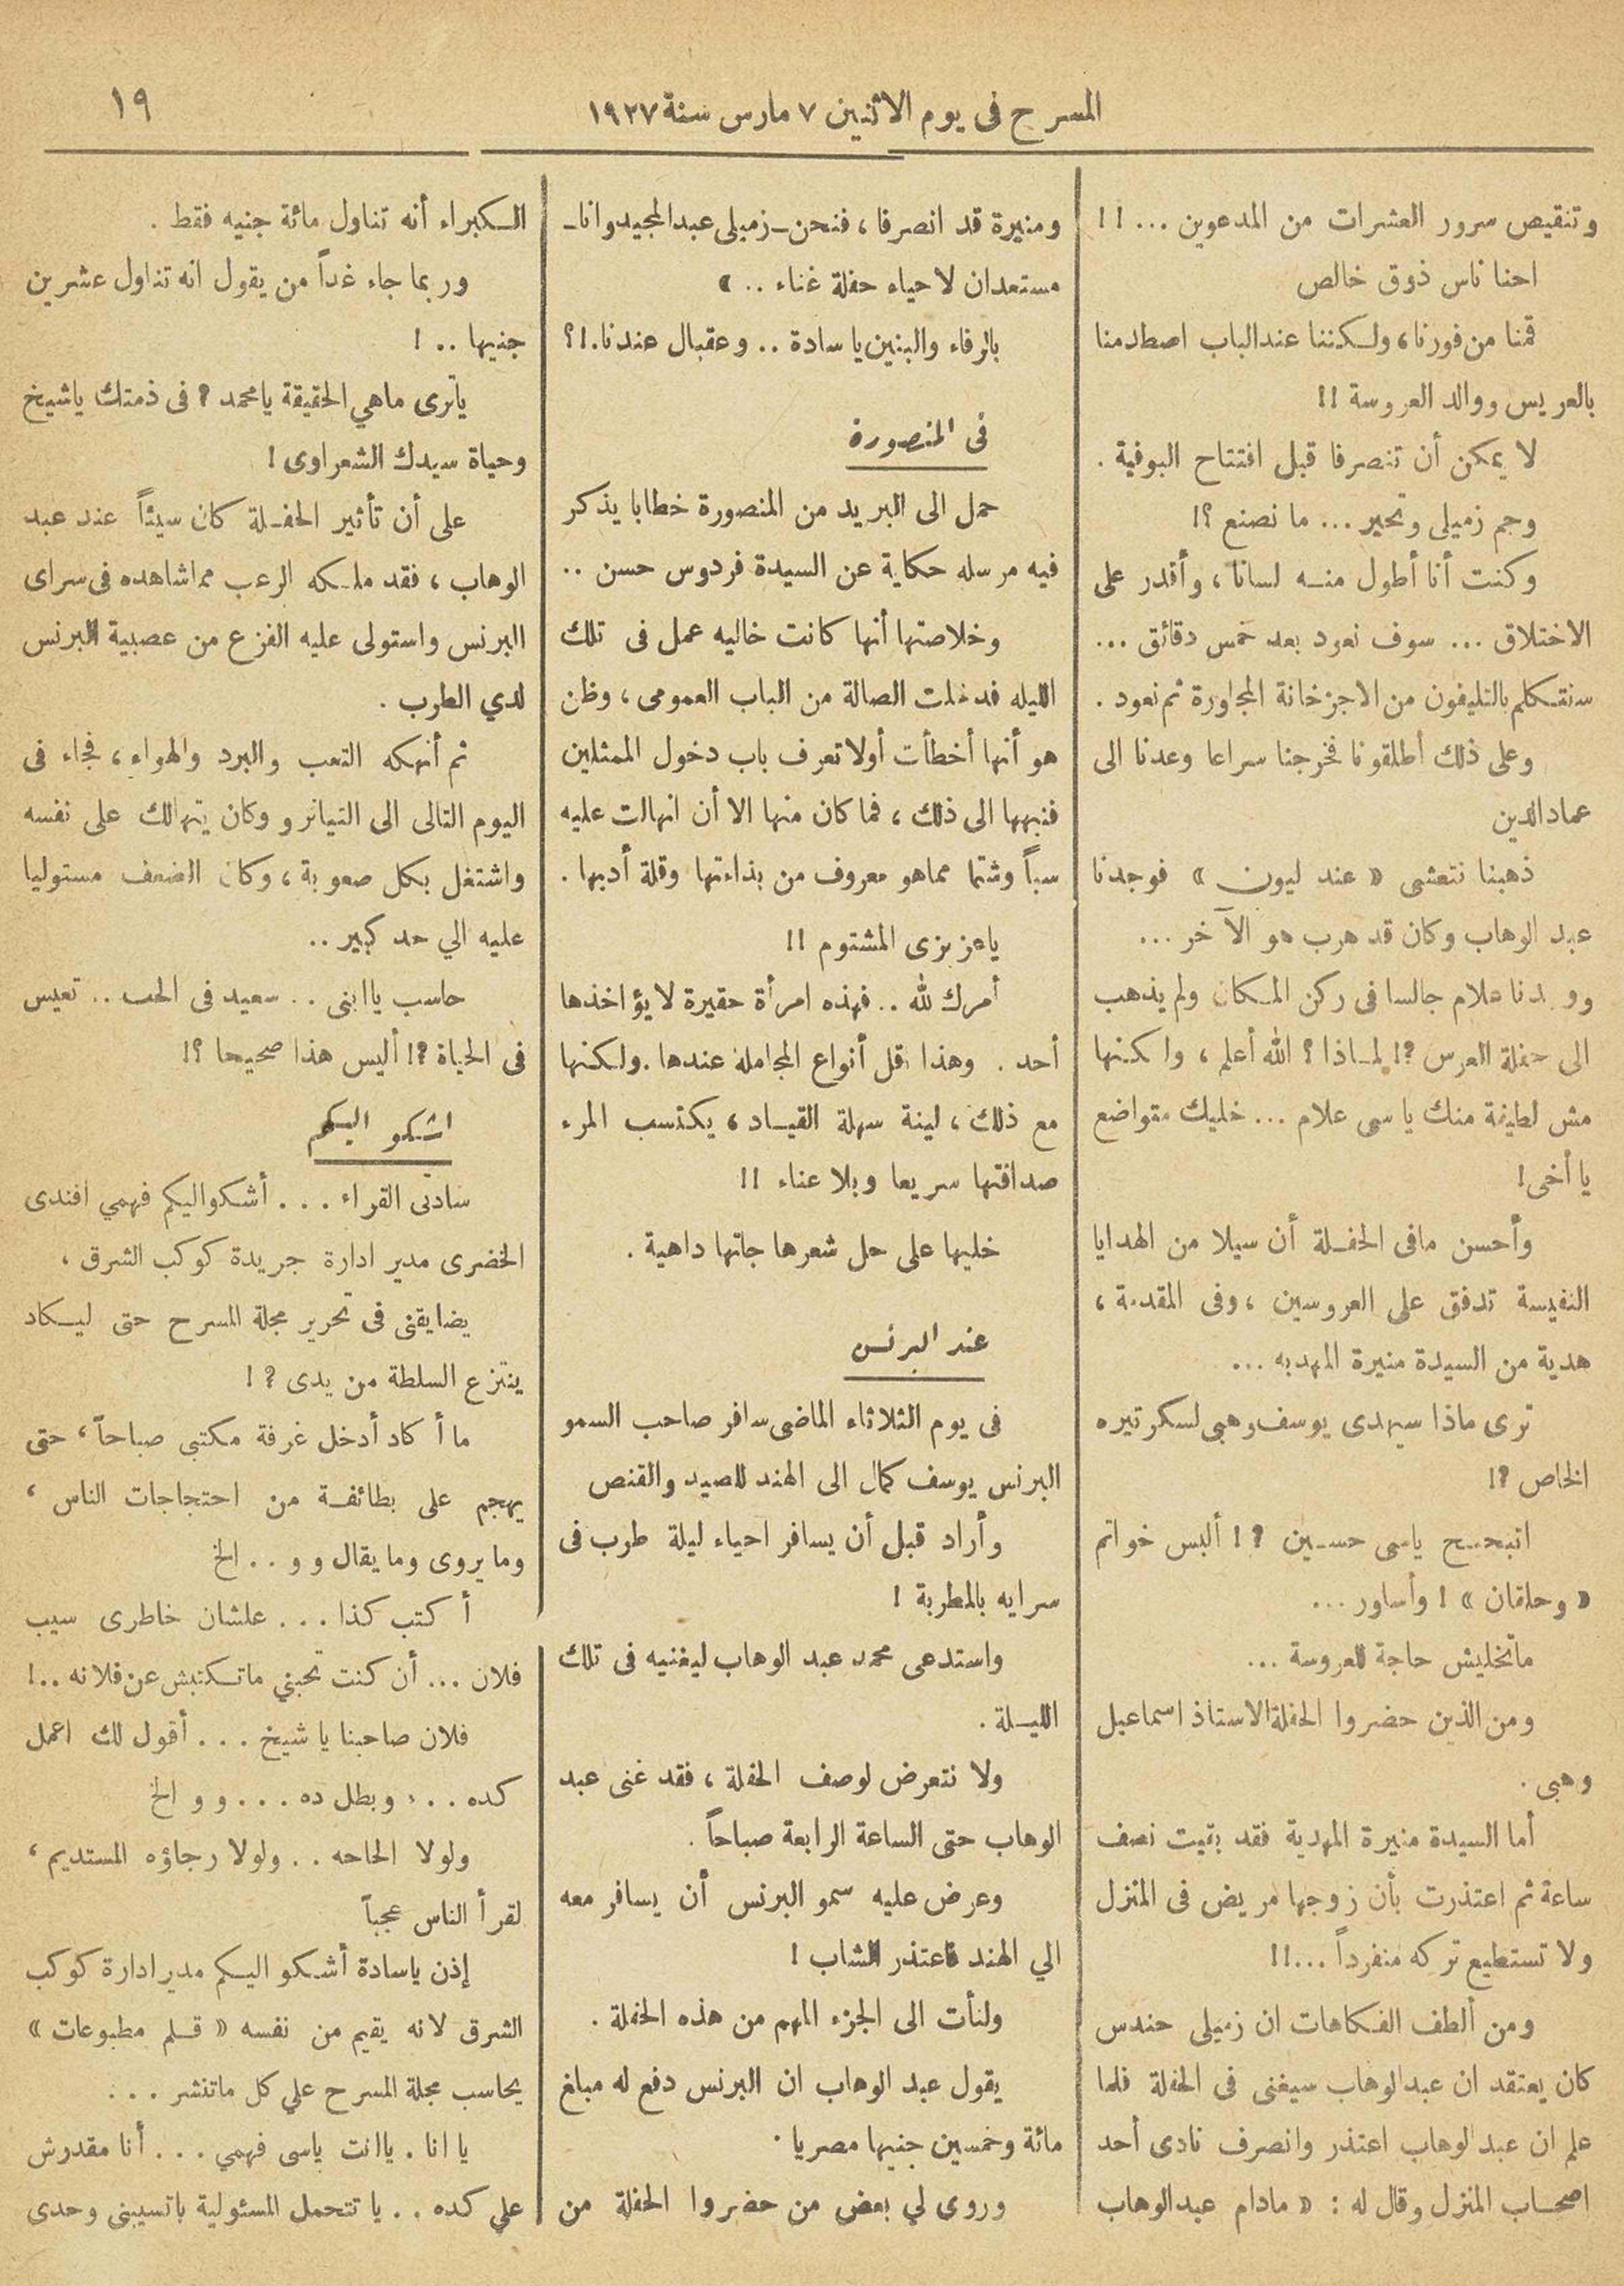 المسرح فى يوم الاثنين ٧ مارس سنة ١٩٢٧
١٩
وتنقيص سرور العشرات من المدعوين ...!!
احنا ناس ذوق خالص
قمنا من فورنا، ولكننا عند الباب اصطدمنا
بالعريس ووالد العروسة !!
لا يمكن أن تنصرفا قبل افتتاح البوفية .
وجم زميلى وتحير ... ما نصنع ؟!
وكنت أنا أطول منه لسانا ، وأقدر على
الاختلاق ... سوف نعود بعد خمس دقائق ...
سنتكلم بالتليفون من الاجزخانة المجاورة ثم نعود .
وعلى ذلك أطلقونا فخرجنا سراعا وعدنا الى
عماد الدين
ذهبنا نتعشى « عند ليون » فوجدنا
عبد الوهاب وكان قد هرب هو الآخر ...
ووجدنا علام جالسا فى ركن المكان ولم يذهب
الى حفلة العرس ؟! لماذا ؟ الله أعلم ، ولكنها
مش لطيفة منك يا سى علام ... خليك متواضع
يا أخى!
وأحسن مافى الحفلة أن سيلا من الهدايا
النفيسة تدفق على العروسين ، وفى المقدمة ،
هدية من السيدة منيرة المهديه ...
ترى ماذا سيهدى يوسف وهبى لسكرتيره
الخاص ؟!
اتبحبح ياسى حسين ؟! ألبس خواتم
« وحلقان » ! وأساور ...
ماتخليش حاجة للعروسة ...
ومن الذين حضروا الحفلة الاستاذ اسماعيل
وهبى .
أما السيدة منيرة المهدية فقد بقيت نصف
ساعة ثم اعتذرت بأن زوجها مريض فى المنزل
ولا تستطيع تركه منفرداً ...!!
ومن ألطف الفكاهات ان زميلى حندس
كان يعتقد ان عبد الوهاب سيغنى فى الحفلة فلما
علم ان عبد الوهاب اعتذر وانصرف نادى أحد
اصحاب المنزل وقال له : « مادام عبد الوهاب
ومنيرة قد انصرفا ، فنحن ـ زميلى عبد المجيد وانا ـ
مستعدان لاحياء حفلة غناء .. »
بالرفاء والبنين يا سادة .. وعقبال عندنا.!؟
فى المنصورة
حمل الى البريد من المنصورة خطابا يذكر
فيه مرسله حكاية عن السيدة فردوس حسن ..
وخلاصتها أنها كانت خاليه عمل فى تلك
الليله فدخلت الصالة من الباب العمومى ، وظن
هو أنها أخطأت أولا تعرف باب دخول الممثلين
فنبهها الى ذلك ، فما كان منها الا أن انهالت عليه
سباً وشتما مماهو معروف من بذاءتها وقلة أدبها .
ياعزيزى المشتوم !!
أمرك لله .. فهذه امرأة حقيرة لا يؤاخذها
أحد . وهذا اقل أنواع المجاملة عندها . ولكنها
مع ذلك ، لينة سهلة القياد ، يكتسب المرء
صداقتها سريعا وبلا عناء !!
خليها على حل شعرها جاتها داهية .
عند البرنس
فى يوم الثلاثاء الماضى سافر صاحب السمو
البرنس يوسف كمال الى الهند للصيد والقنص
وأراد قبل أن يسافر احياء ليلة طرب فى
سرايه بالمطرية !
واستدعى محمد عبد الوهاب ليغنيه فى تلك
الليلة .
ولا نتعرض لوصف الحفلة ، فقد غنى عبد
الوهاب حتى الساعة الرابعة صباحاً .
وعرض عليه سمو البرنس أن يسافر معه
الي الهند فاعتذر الشاب !
ولنأت الى الجزء المهم من هذه الحفلة .
يقول عبد الوهاب ان البرنس دفع له مبلغ
مائة وخمسين جنيها مصريا .
وروى لي بعض من حضروا الحفلة من
الكبراء أنه تناول مائة جنيه فقط .
وربما جاء غداً من يقول انه تناول عشرين
جنيها .. !
ياترى ماهي الحقيقة يا محمد ؟ فى ذمتك ياشيخ
وحياة سيدك الشعراوى !
على أن تأثير الحفلة كان سيئاً عند عبد
الوهاب ، فقد ملكه الرعب مما شاهده فى سراى
البرنس واستولى عليه الفزع من عصبية البرنس
لدي الطرب .
ثم أنهكه التعب والبرد والهواء ، فجاء فى
اليوم التالى الى التياترو وكان يتهالك على نفسه
واشتغل بكل صعوبة ، وكان الضعف مستوليا
عليه الي حد كبير ..
حاسب يا ابنى .. سعيد فى الحب .. تعيس
فى الحياة ؟! أليس هذا صحيحا ؟!
اشكو اليكم
سادتى القراء ... أشكو اليكم فهمي افندى
الخضرى مدير ادارة جريدة كوكب الشرق ،
يضايقنى فى تحرير مجلة المسرح حتى ليكاد
ينتزع السلطة من يدى ؟ !
ما أكاد أدخل غرفة مكتبى صباحاً ، حتى
يهجم على بطائفة من احتجاجات الناس ،
وما يروى وما يقال و و .. الخ
أكتب كذا ... علشان خاطرى سيب
فلان ... أن كنت تحبني ماتكتبش عن فلانه ..!
فلان صاحبنا يا شيخ ... أقول لك اعمل
كده ... وبطل ده ... و و الخ
ولولا الحاحه .. ولولا رجاؤه المستديم ،
لقرأ الناس عجباً
إذن ياسادة أشكو اليكم مدير ادارة كوكب
الشرق لانه يقيم من نفسه « قلم مطبوعات »
يحاسب مجلة المسرح علي كل ماتنشر ...
يا انا . ياانت ياسى فهمي ... أنا مقدرش
علي كده .. يا تتحمل المسئولية ياتسيبنى وحدى